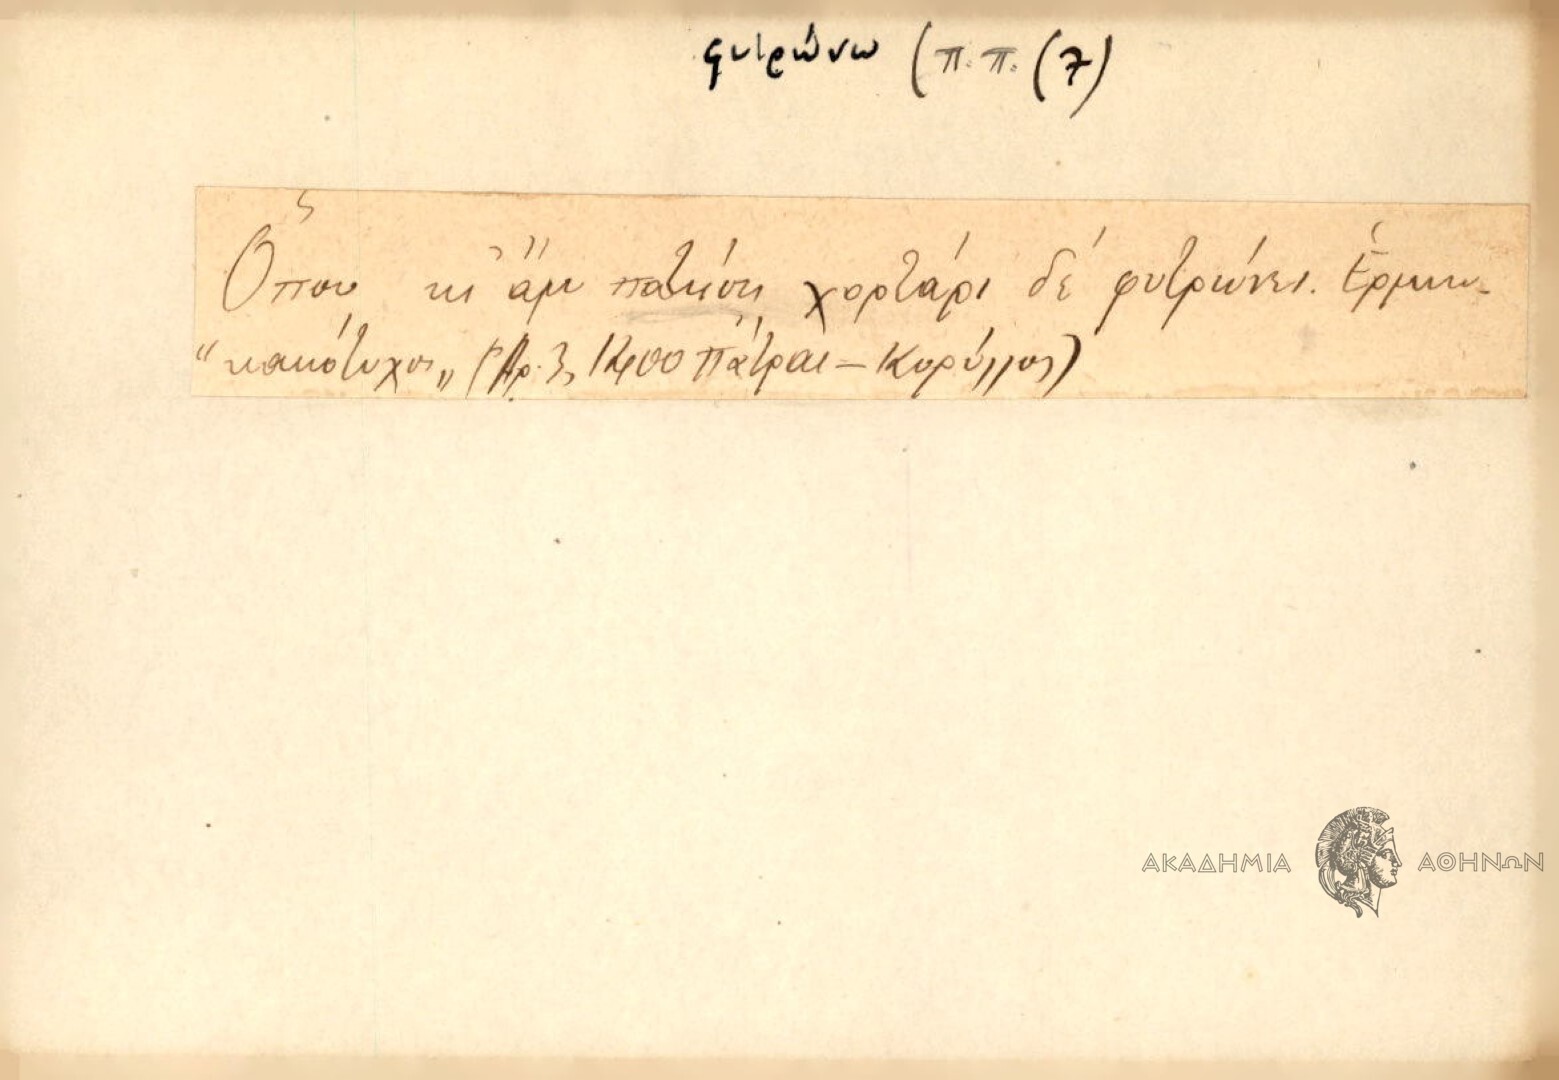 φυτρώνω (π.π. (7)
Ὅπου κι ἂν πατήσῃ χορτάρι δέ φυτρώνει. Ἑρμην.
“κακότυχος„ (Ἀρ. 3, 1400 Πάτραι – Κορύλλος)
ΑΚΑΔΗΜΙΑ ΑΘΗΝΩΝ